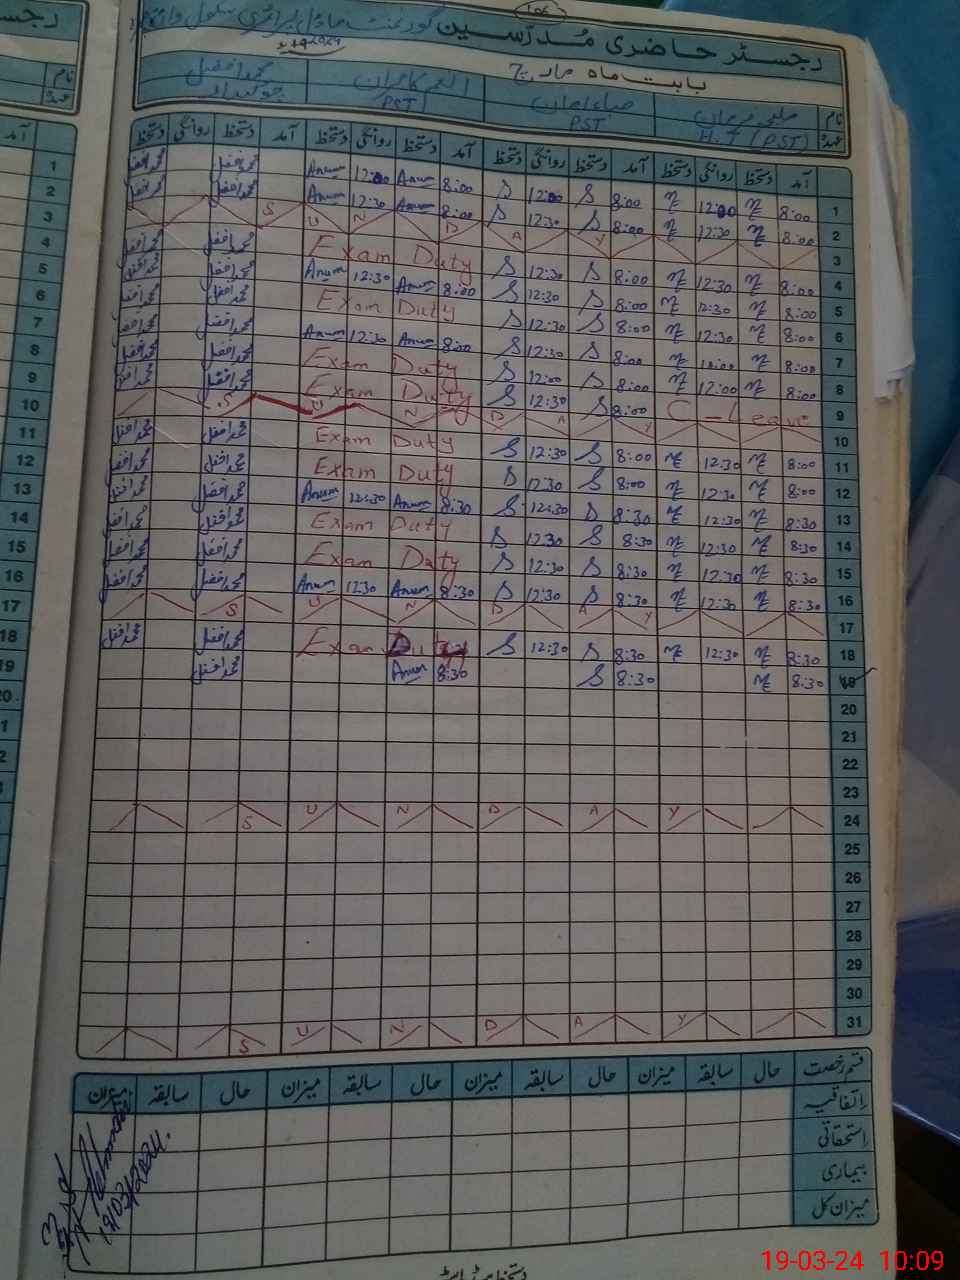 رجسٹر حاضری مُدرّسین گورنمنٹ ماڈل پرائمری سکول
بابت ماہ مارچ 2024ء
نام ملیحہ ضیاء انعم کامران محمد افضل
عہدہ H.T (PST) PST PST چوکیدار
آمد دستخط روانگی دستخط آمد دستخط روانگی دستخط آمد دستخط روانگی دستخط آمد دستخط روانگی دستخط
1 8:00 12:00 8:00 S 12:00 S 8:00 Anum 12:00 Anum محمد افضل محمد افضل 1
2 8:00 12:30 8:00 S 12:30 S 8:00 Anum 12:30 Anum محمد افضل محمد افضل 2
3 S U N D A Y 3
4 8:00 12:30 8:00 S 12:30 S Exam Duty محمد افضل محمد افضل 4
5 8:00 12:30 8:00 S 12:30 S 8:00 Anum 12:30 Anum محمد افضل محمد افضل 5
6 8:00 12:30 8:00 S 12:30 S Exam Duty محمد افضل محمد افضل 6
7 8:00 8:00 S 12:30 S 8:00 Anum 12:30 Anum محمد افضل محمد افضل 7
8 8:00 12:00 8:00 S 12:00 S Exam Duty محمد افضل محمد افضل 8
9 C-Leave 8:00 S 12:30 S Exam Duty محمد افضل محمد افضل 9
10 S U N D A Y 10
11 8:00 12:30 8:00 S 12:30 S Exam Duty محمد افضل محمد افضل 11
12 8:00 12:30 8:00 S 12:30 S Exam Duty محمد افضل محمد افضل 12
13 8:30 12:30 8:30 S 12:30 S 8:30 Anum 12:30 Anum محمد افضل محمد افضل 13
14 8:30 12:30 8:30 S 12:30 S Exam Duty محمد افضل محمد افضل 14
15 8:30 12:30 8:30 S 12:30 S Exam Duty محمد افضل محمد افضل 15
16 8:30 12:30 8:30 S 12:30 S 8:30 Anum 12:30 Anum محمد افضل محمد افضل 16
17 S U N D A Y 17
18 8:30 12:30 8:30 S 12:30 S Exam Duty محمد افضل محمد افضل 18
19 8:30 8:30 S 8:30 Anum محمد افضل 19
20
21
22
23
24 S U N D A Y
25
26
27
28
29
30
31 S U N D A Y
قسم رخصت حال سابقہ میزان حال سابقہ میزان حال سابقہ میزان حال سابقہ میزان
اتفاقیہ
استحقاقی
بیماری
میزان کل
19/03/2024.
19-03-24 10:09